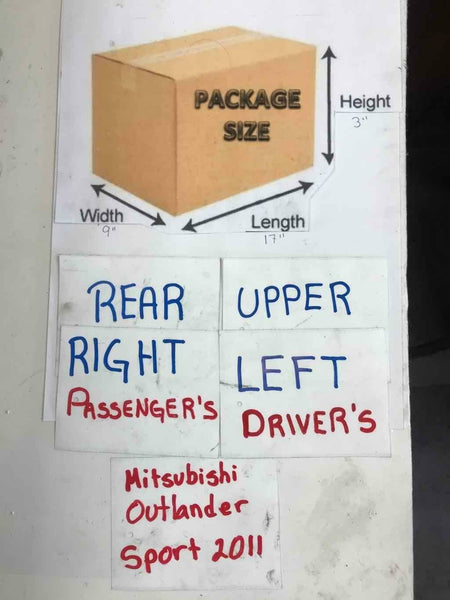 PACKAGE
SIZE
Height
3"
Width
9"
Length
17"
REAR
UPPER
RIGHT
PASSENGER'S
LEFT
DRIVER'S
Mitsubishi
Outlander
Sport 2011